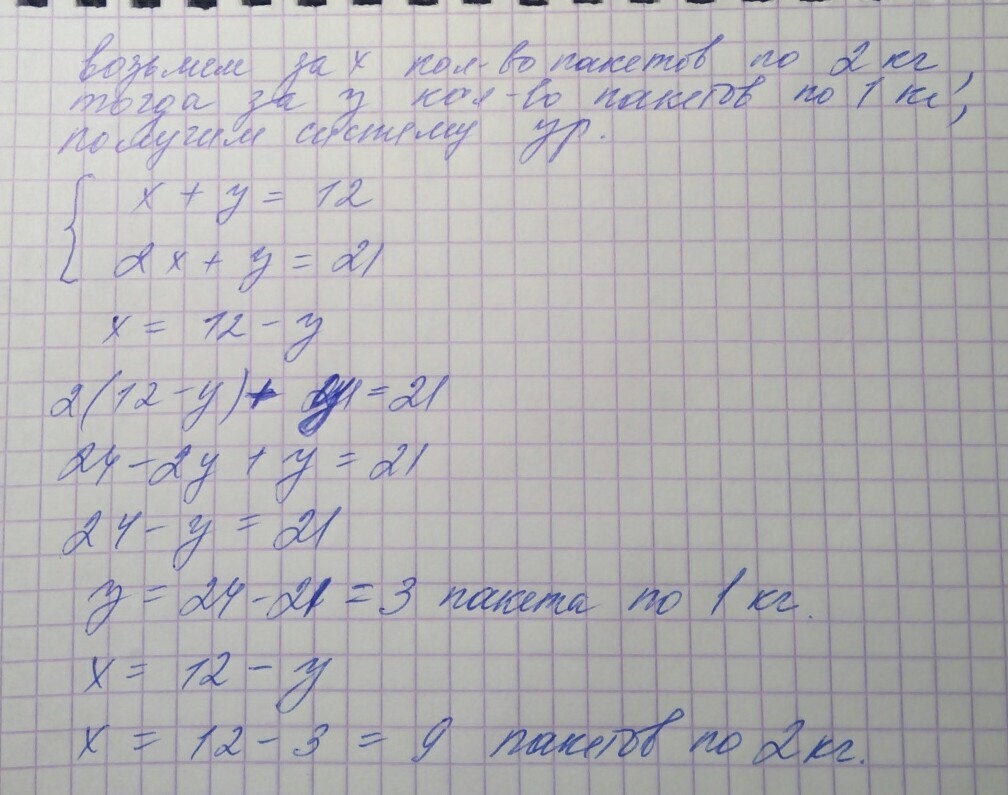 возьмем за x кол-во пакетов по 2 кг,
тогда за y кол-во пакетов по 1 кг,
получим систему ур.
{ x + y = 12
2x + y = 21
x = 12 - y
2(12 - y) + y = 21
24 - 2y + y = 21
24 - y = 21
y = 24 - 21 = 3 пакета по 1 кг.
x = 12 - y
x = 12 - 3 = 9 пакетов по 2 кг.